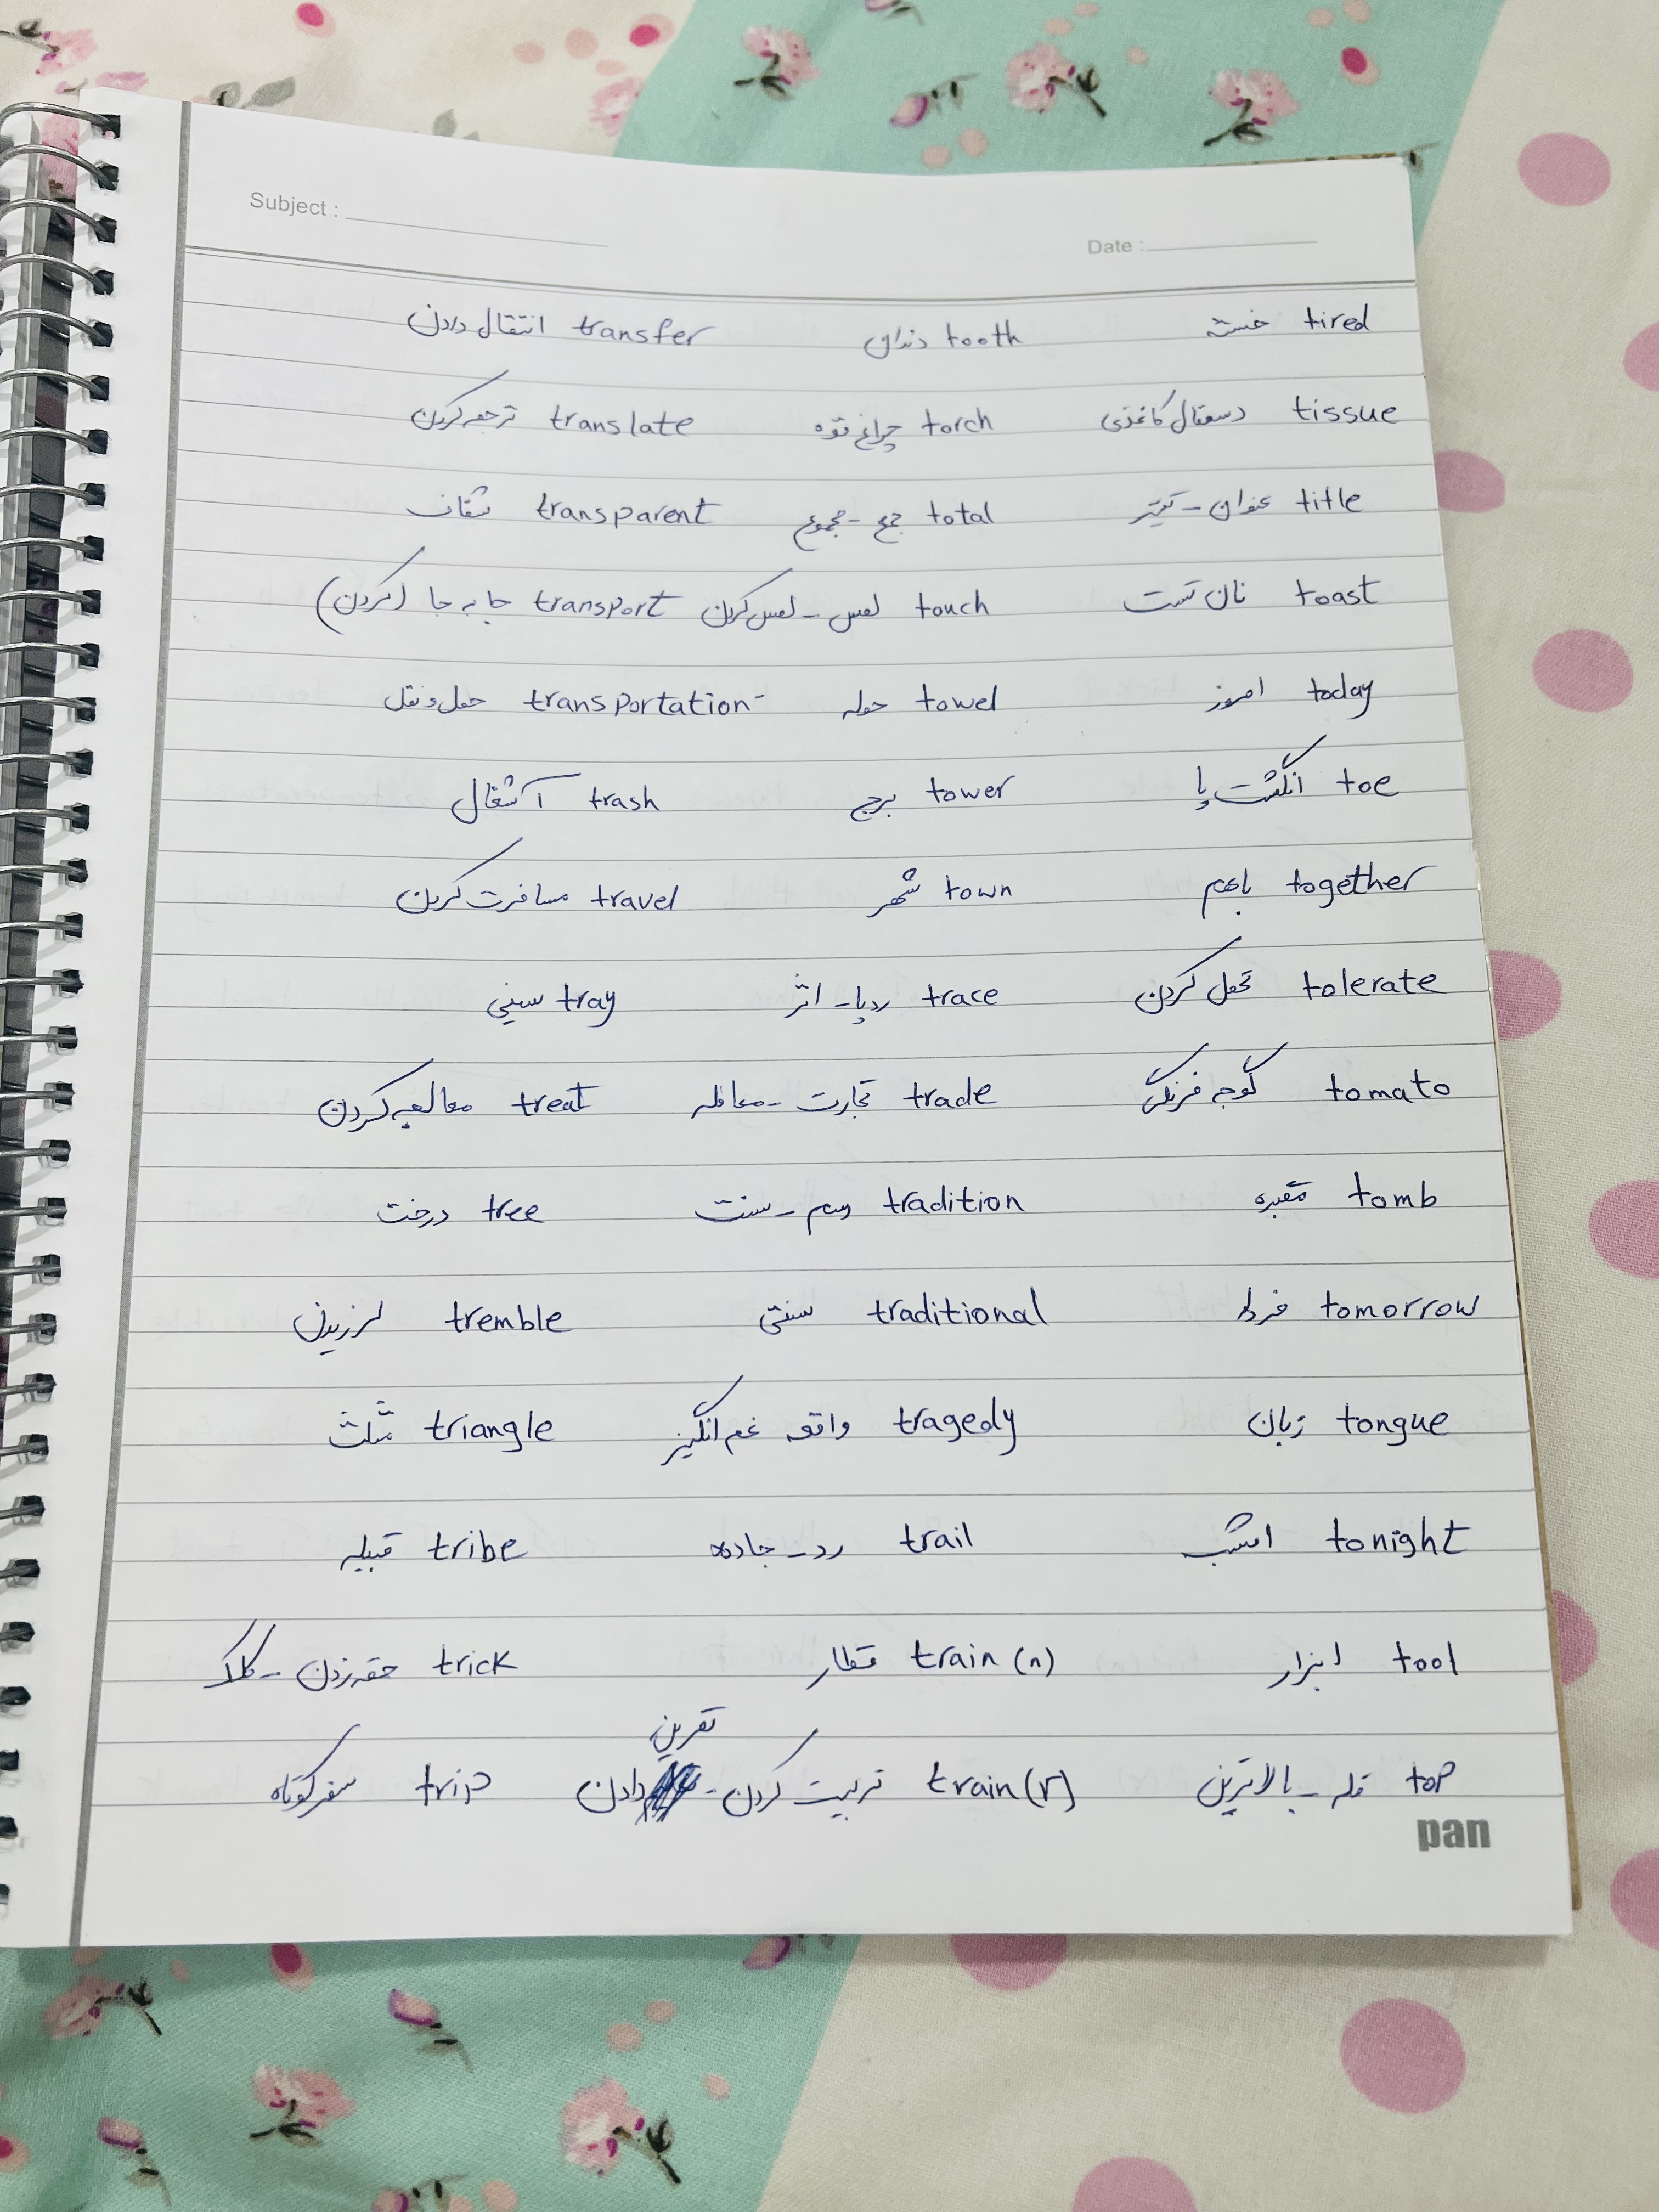 Subject :
Date :
tired خسته
tooth دندان
transfer انتقال دادن
tissue دستمال کاغذی
torch چراغ قوه
translate ترجمه کردن
title عنوان - تیتر
total جمع - مجموع
transparent شفاف
toast نان تست
touch لمس - لمس کردن
transport جا به جا (کردن)
today امروز
towel حوله
transportation حمل و نقل
toe انگشت پا
tower برج
trash آشغال
together باهم
town شهر
travel مسافرت کردن
tolerate تحمل کردن
trace ردپا - اثر
tray سینی
tomato گوجه فرنگی
trade تجارت - معامله
treat معالجه کردن
tomb مقبره
tradition رسم - سنت
tree درخت
tomorrow فردا
traditional سنتی
tremble لرزیدن
tongue زبان
tragedy واقعه غم انگیز
triangle مثلث
tonight امشب
trail رد - جاده
tribe قبیله
tool ابزار
train (n) قطار
trick حقه زدن - کلک
top قله - بالاترین
train (v) تربیت کردن - تمرین دادن
trip سفر کوتاه
pan